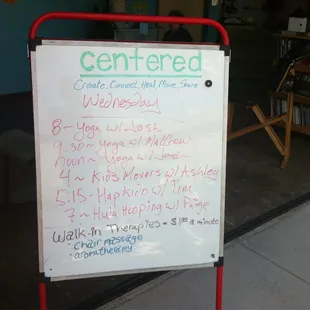 centered
Create, Connect, Heal, Move, Share
Wednesday
8 ~ Yoga w/ Josh
9:30 ~ Yoga w/ Matthew
Noon ~ Yoga w/
4 ~ Kid's Movers w/ Ashley
5:15 - Hapkido w/ Tim
7 ~ Hula Hooping w/ Paige
Walk-in Therapies = $1 a minute
- chair massage
- aromatherapy